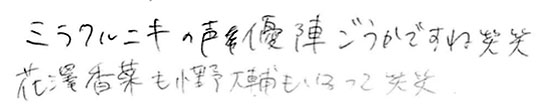 ミラクルニキの声優陣ごうかですね笑笑
花澤香菜も小野大輔もいるって笑笑